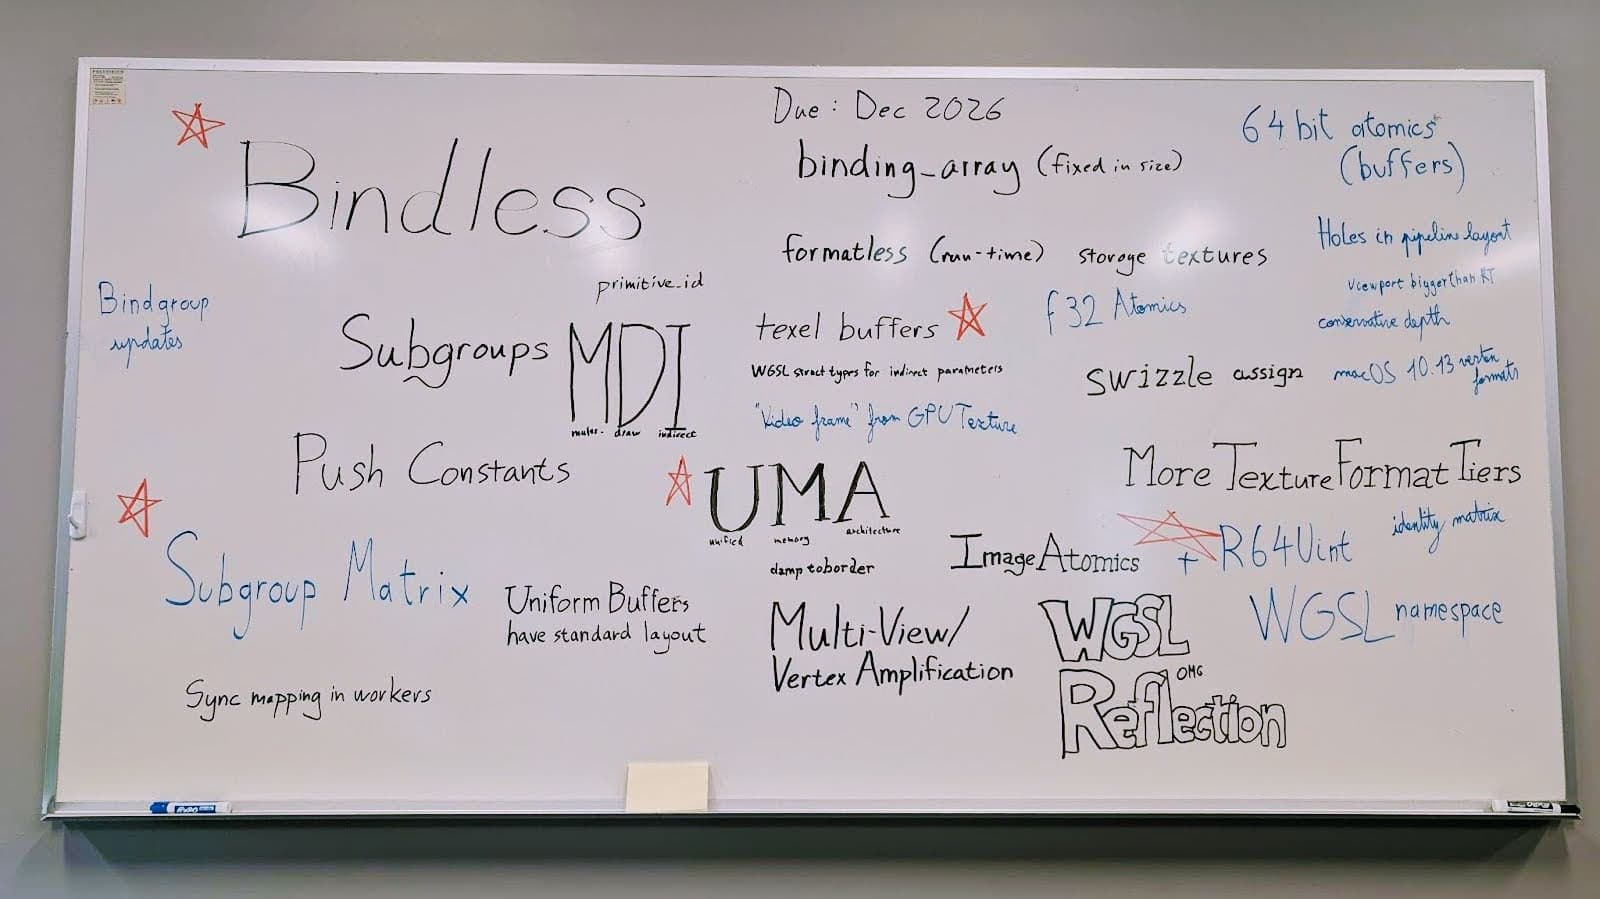 Due: Dec 2026
Bindless
binding_array (fixed in size)
64 bit atomics
(buffers)
formatless (run-time) storage textures
Holes in pipeline layout
viewport bigger than RT
conservative depth
macOS 10.13 vertex
formats
primitive_id
Bindgroup
updates
Subgroups
MDI
multi- draw indirect
texel buffers
f32 Atomics
WGSL struct types for indirect parameters
swizzle assign
"Video frame" from GPUTexture
Push Constants
UMA
unified memory architecture
More Texture Format Tiers
identity matrix
Image Atomics + R64Uint
Subgroup Matrix
Uniform Buffers
have standard layout
Multi-View/
Vertex Amplification
WGSL
OMG
Reflection
WGSL namespace
Sync mapping in workers
EXPO